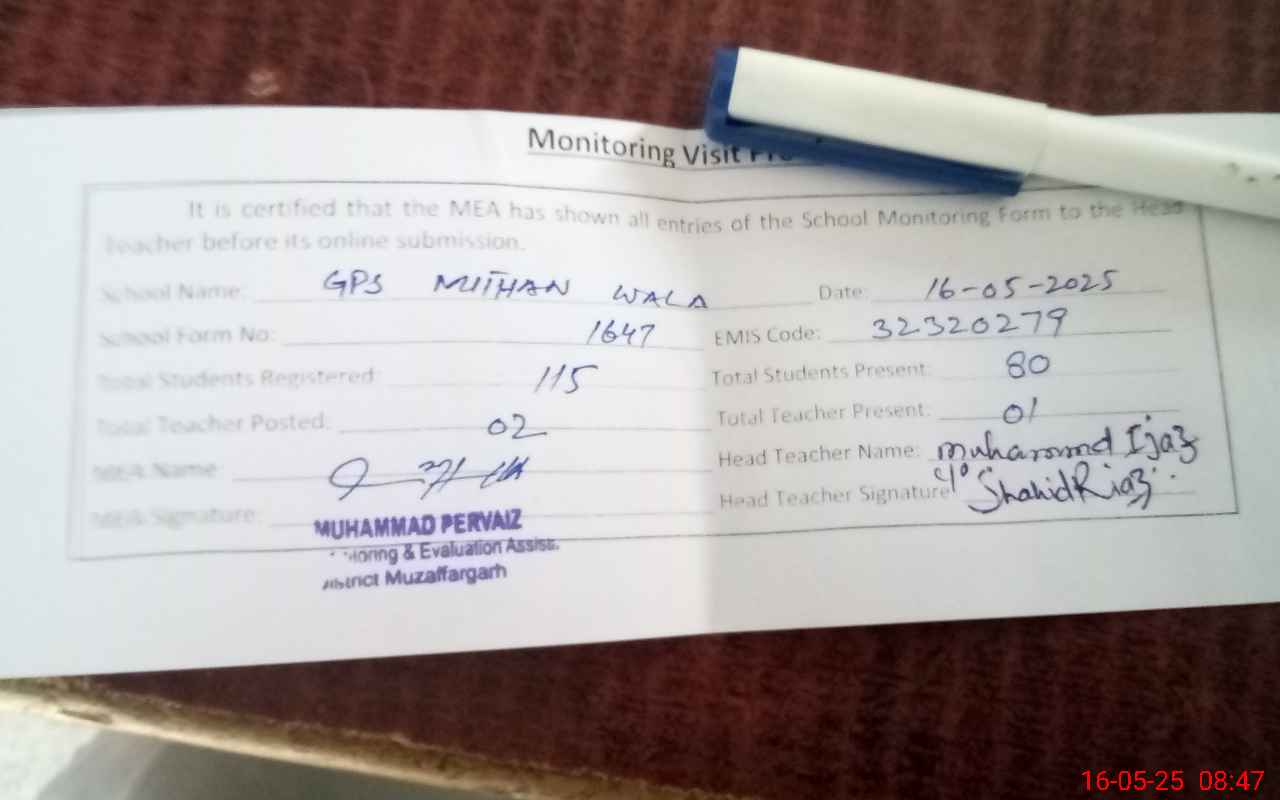 Monitoring Visit
It is certified that the MEA has shown all entries of the School Monitoring Form to the Head
Teacher before its online submission.
School Name: GPS MITHAN WALA Date: 16-05-2025
School Form No: 1647 EMIS Code: 32320279
Total Students Registered: 115 Total Students Present: 80
Total Teacher Posted: 02 Total Teacher Present: 01
MEA Name Head Teacher Name: Muhammd Ijaz
MEA Signature: Head Teacher Signature Shahid Riaz
MUHAMMAD PERVAIZ
& Evaluation Assist.
District Muzaffargarh
16-05-25 08:47